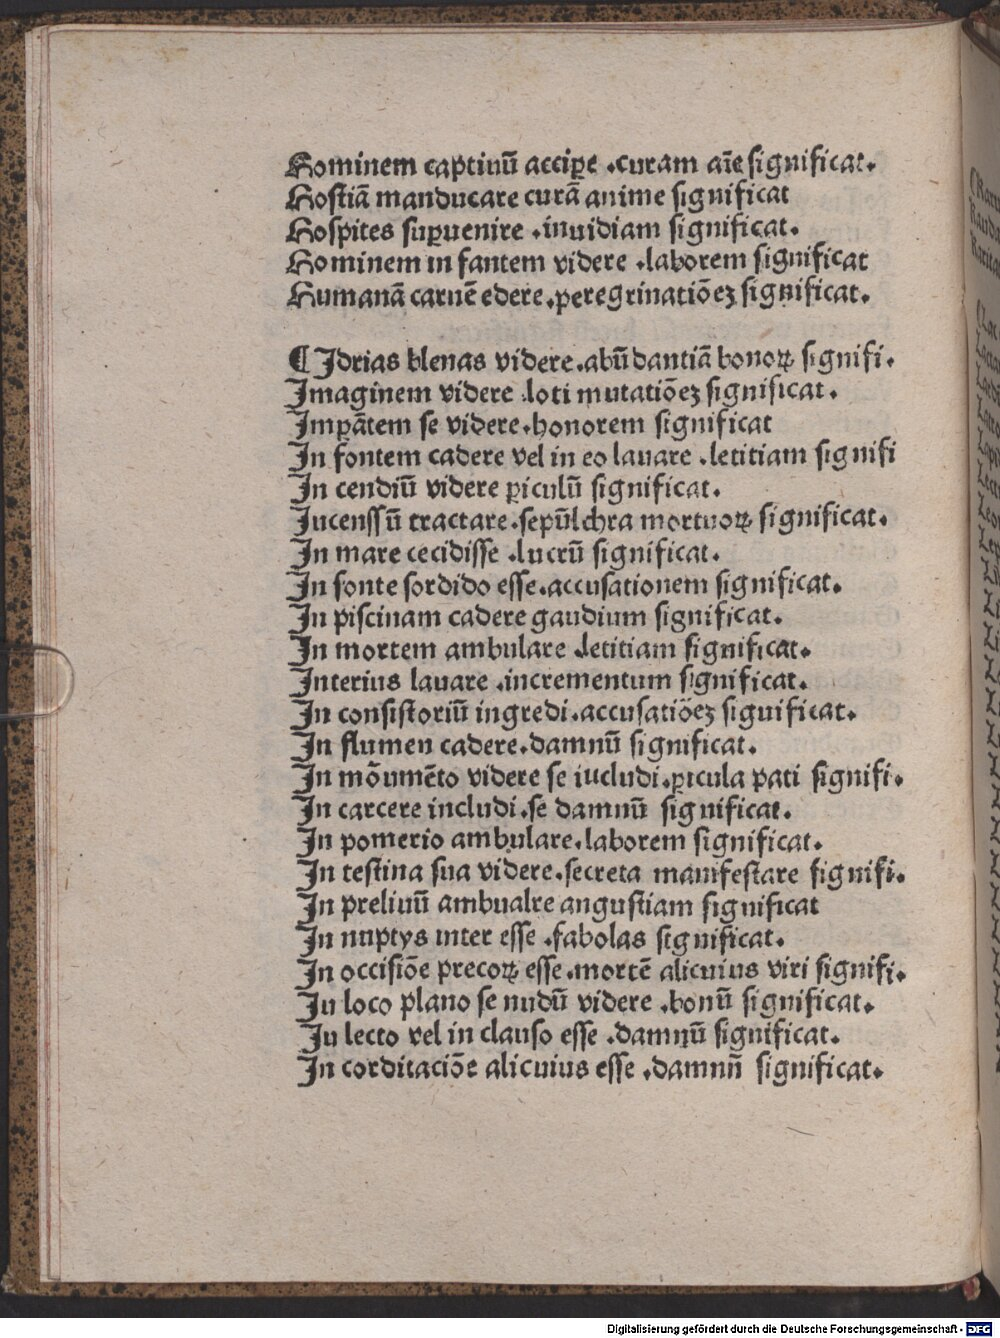 Hominem captiuū accipe .curam aīe significat.
Hostiā manducare curā anime significat
Hospites supuenire .inuidiam significat.
Hominem in fantem videre .laborem significat
Humanā carnē edere.peregrinatiōeʒ significat.
¶ Jdrias blenas videre.abūdantiā bonoꝝ signifi.
Jmaginem videre .loti mutatiōeʒ significat.
Jmꝑātem se videre.honorem significat
Jn fontem cadere vel in eo lauare .letitiam signifi
Jn cendiū videre ꝑiculū significat.
Jucenssū tractare.sepūlchra mortuoꝝ significat.
Jn mare cecidisse .lucrū significat.
Jn fonte sordido esse.accusationem significat.
Jn piscinam cadere gaudium significat.
Jn mortem ambulare .letitiam significat.
Jnterius lauare .incrementum significat.
Jn consistoriū ingredi.accusatiōeʒ siguificat.
Jn flumen cadere.damnū significat.
Jn mōumēto videre se iucludi.ꝑicula pati signifi.
Jn carcere includi.se damnū significat.
Jn pomerio ambulare.laborem significat.
Jn testina sua videre.secreta manifestare signifi.
Jn preliuū ambualre angustiam significat
Jn nuptys inter esse .fabolas significat.
Jn occisiōe precoꝝ esse.mortē alicuius viri signifi.
Ju loco plano se nudū videre .bonū significat.
Ju lecto vel in clauso esse .damnū significat.
Jn corditaciōe alicuius esse .damnū significat.
Digitalisierung gefördert durch die Deutsche Forschungsgemeinschaft - DFG